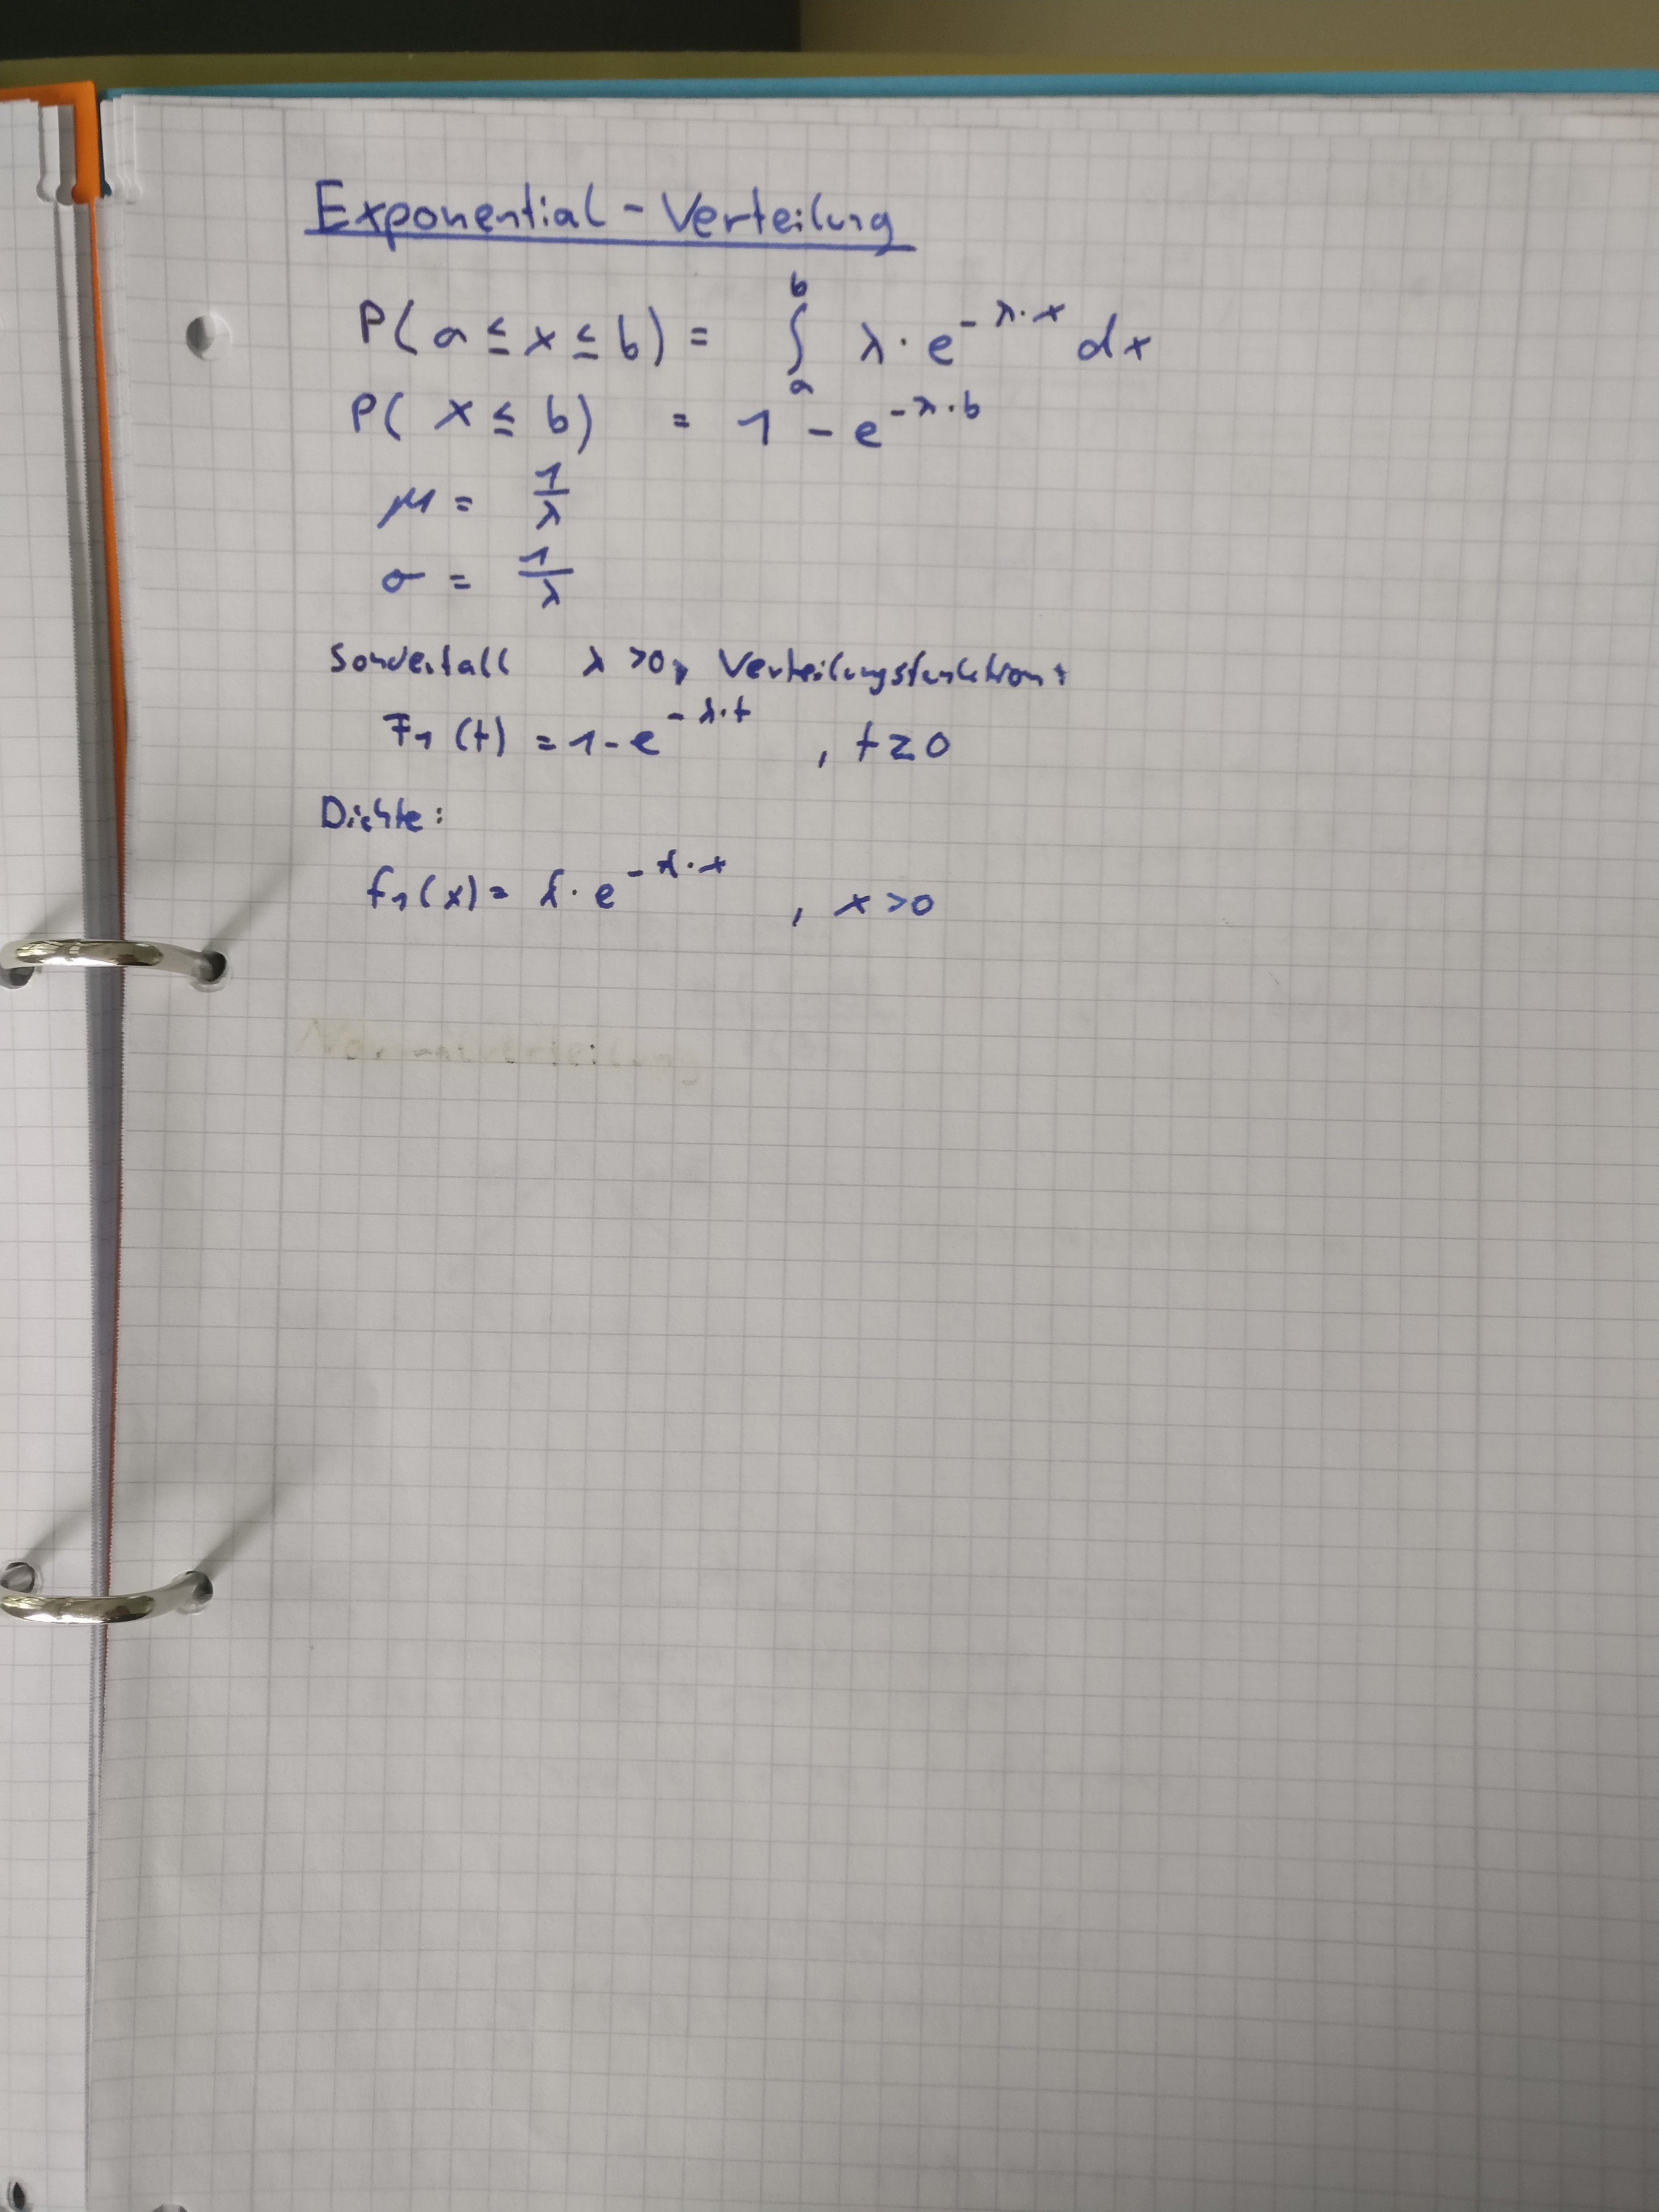 Exponential - Verteilung
P( a ≤ x ≤ b) = ∫ₐᵇ λ · e^(-λ·x) dx
P( x ≤ b) = 1 - e^(-λ·b)
μ = 1/λ
σ = 1/λ
Sonderfall λ >0, Verteilungsfunktion:
F₁ (t) = 1-e^(-λ·t) , t≥0
Dichte:
f₁(x) = λ· e^(-λ·x) , x >0
Normalverteilung